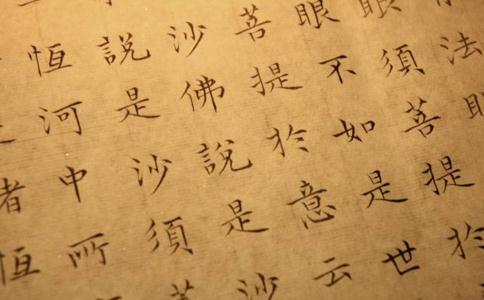 法眼
眼須菩提於
眼不如是世
菩提於意云
沙佛說是沙
說是沙須菩
恆河中所
者恆